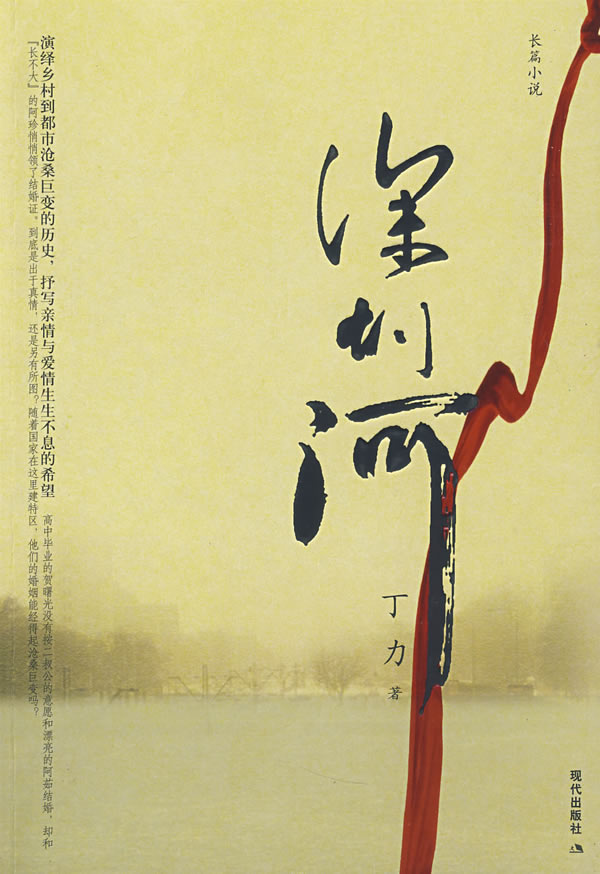 长篇小说
深圳河
丁力 著
演绎乡村到都市沧桑巨变的历史，抒写亲情与爱情生生不息的希望
高中毕业的贺曙光没有按二叔公的意愿和漂亮的阿茹结婚，却和
『长不大』的阿珍悄悄领了结婚证。到底是出于真情，还是另有所图？随着国家在这里建特区，他们的婚姻能经得起沧桑巨变吗？
现代出版社